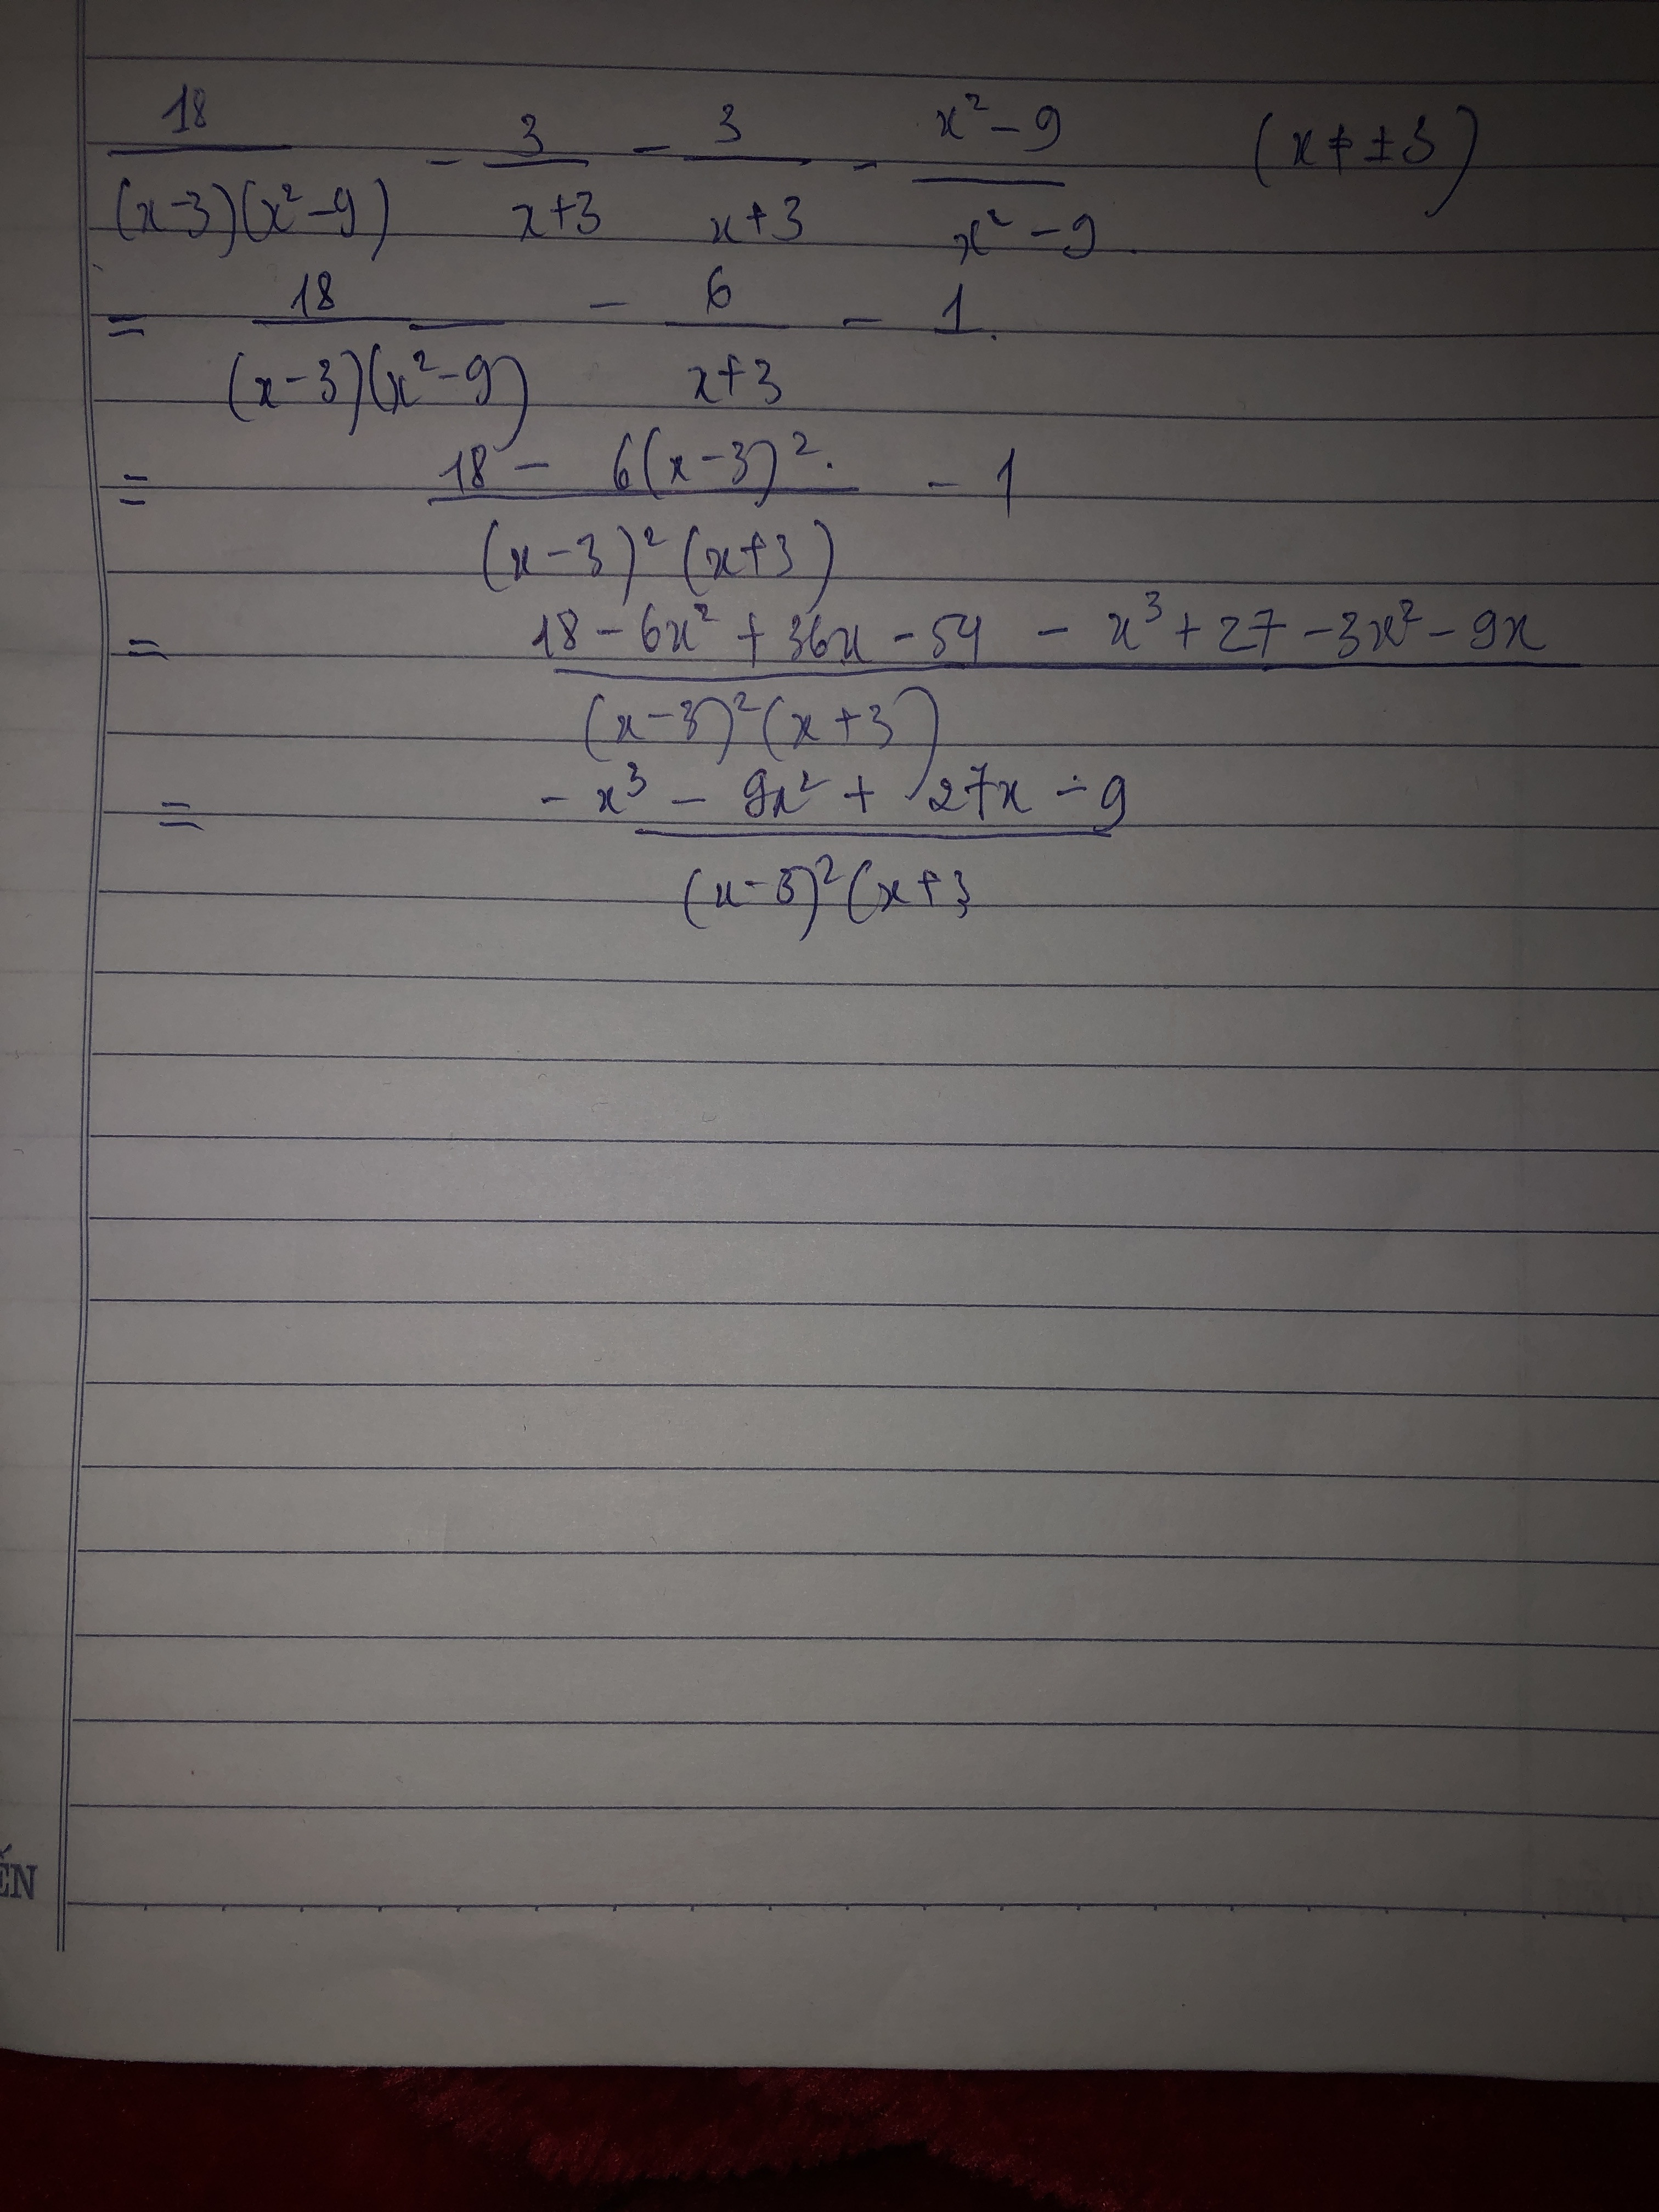 18/((x-3)(x²-9)) - 3/(x+3) - 3/(x+3) - (x²-9)/(x²-9) (x≠±3)
= 18/((x-3)(x²-9)) - 6/(x+3) - 1.
= (18 - 6(x-3)².)/((x-3)²(x+3)) - 1
= (18 - 6x² + 36x - 54 - x³ + 27 - 3x² - 9x)/((x-3)²(x+3))
= (-x³ - 9x² + 27x - 9)/((x-3)²(x+3
ẾN